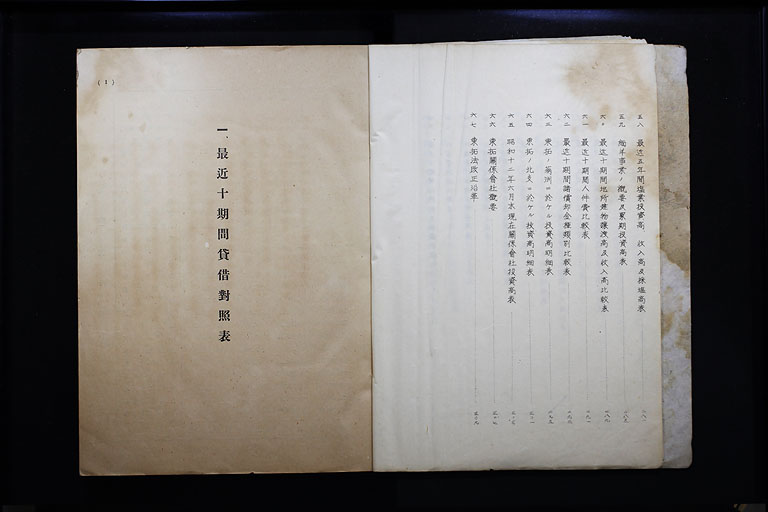 五八 最近五年間塩業投資高、收入高及採塩高表
五九 緬羊事業ノ概要及累期投資高表
六〇 最近十期間地所建物譲渡高及收入高比較表
六一 最近十期間人件費比較表
六二 最近十期間諸償却金種類別比較表
六三 東拓ノ満洲ニ於ケル投資高明細表
六四 東拓ノ北支ニ於ケル投資高明細表
六五 昭和十二年六月末現在關係會社投資高表
六六 東拓關係會社概要
六七 東拓法改正沿革
(1)
一、最近十期間貸借對照表